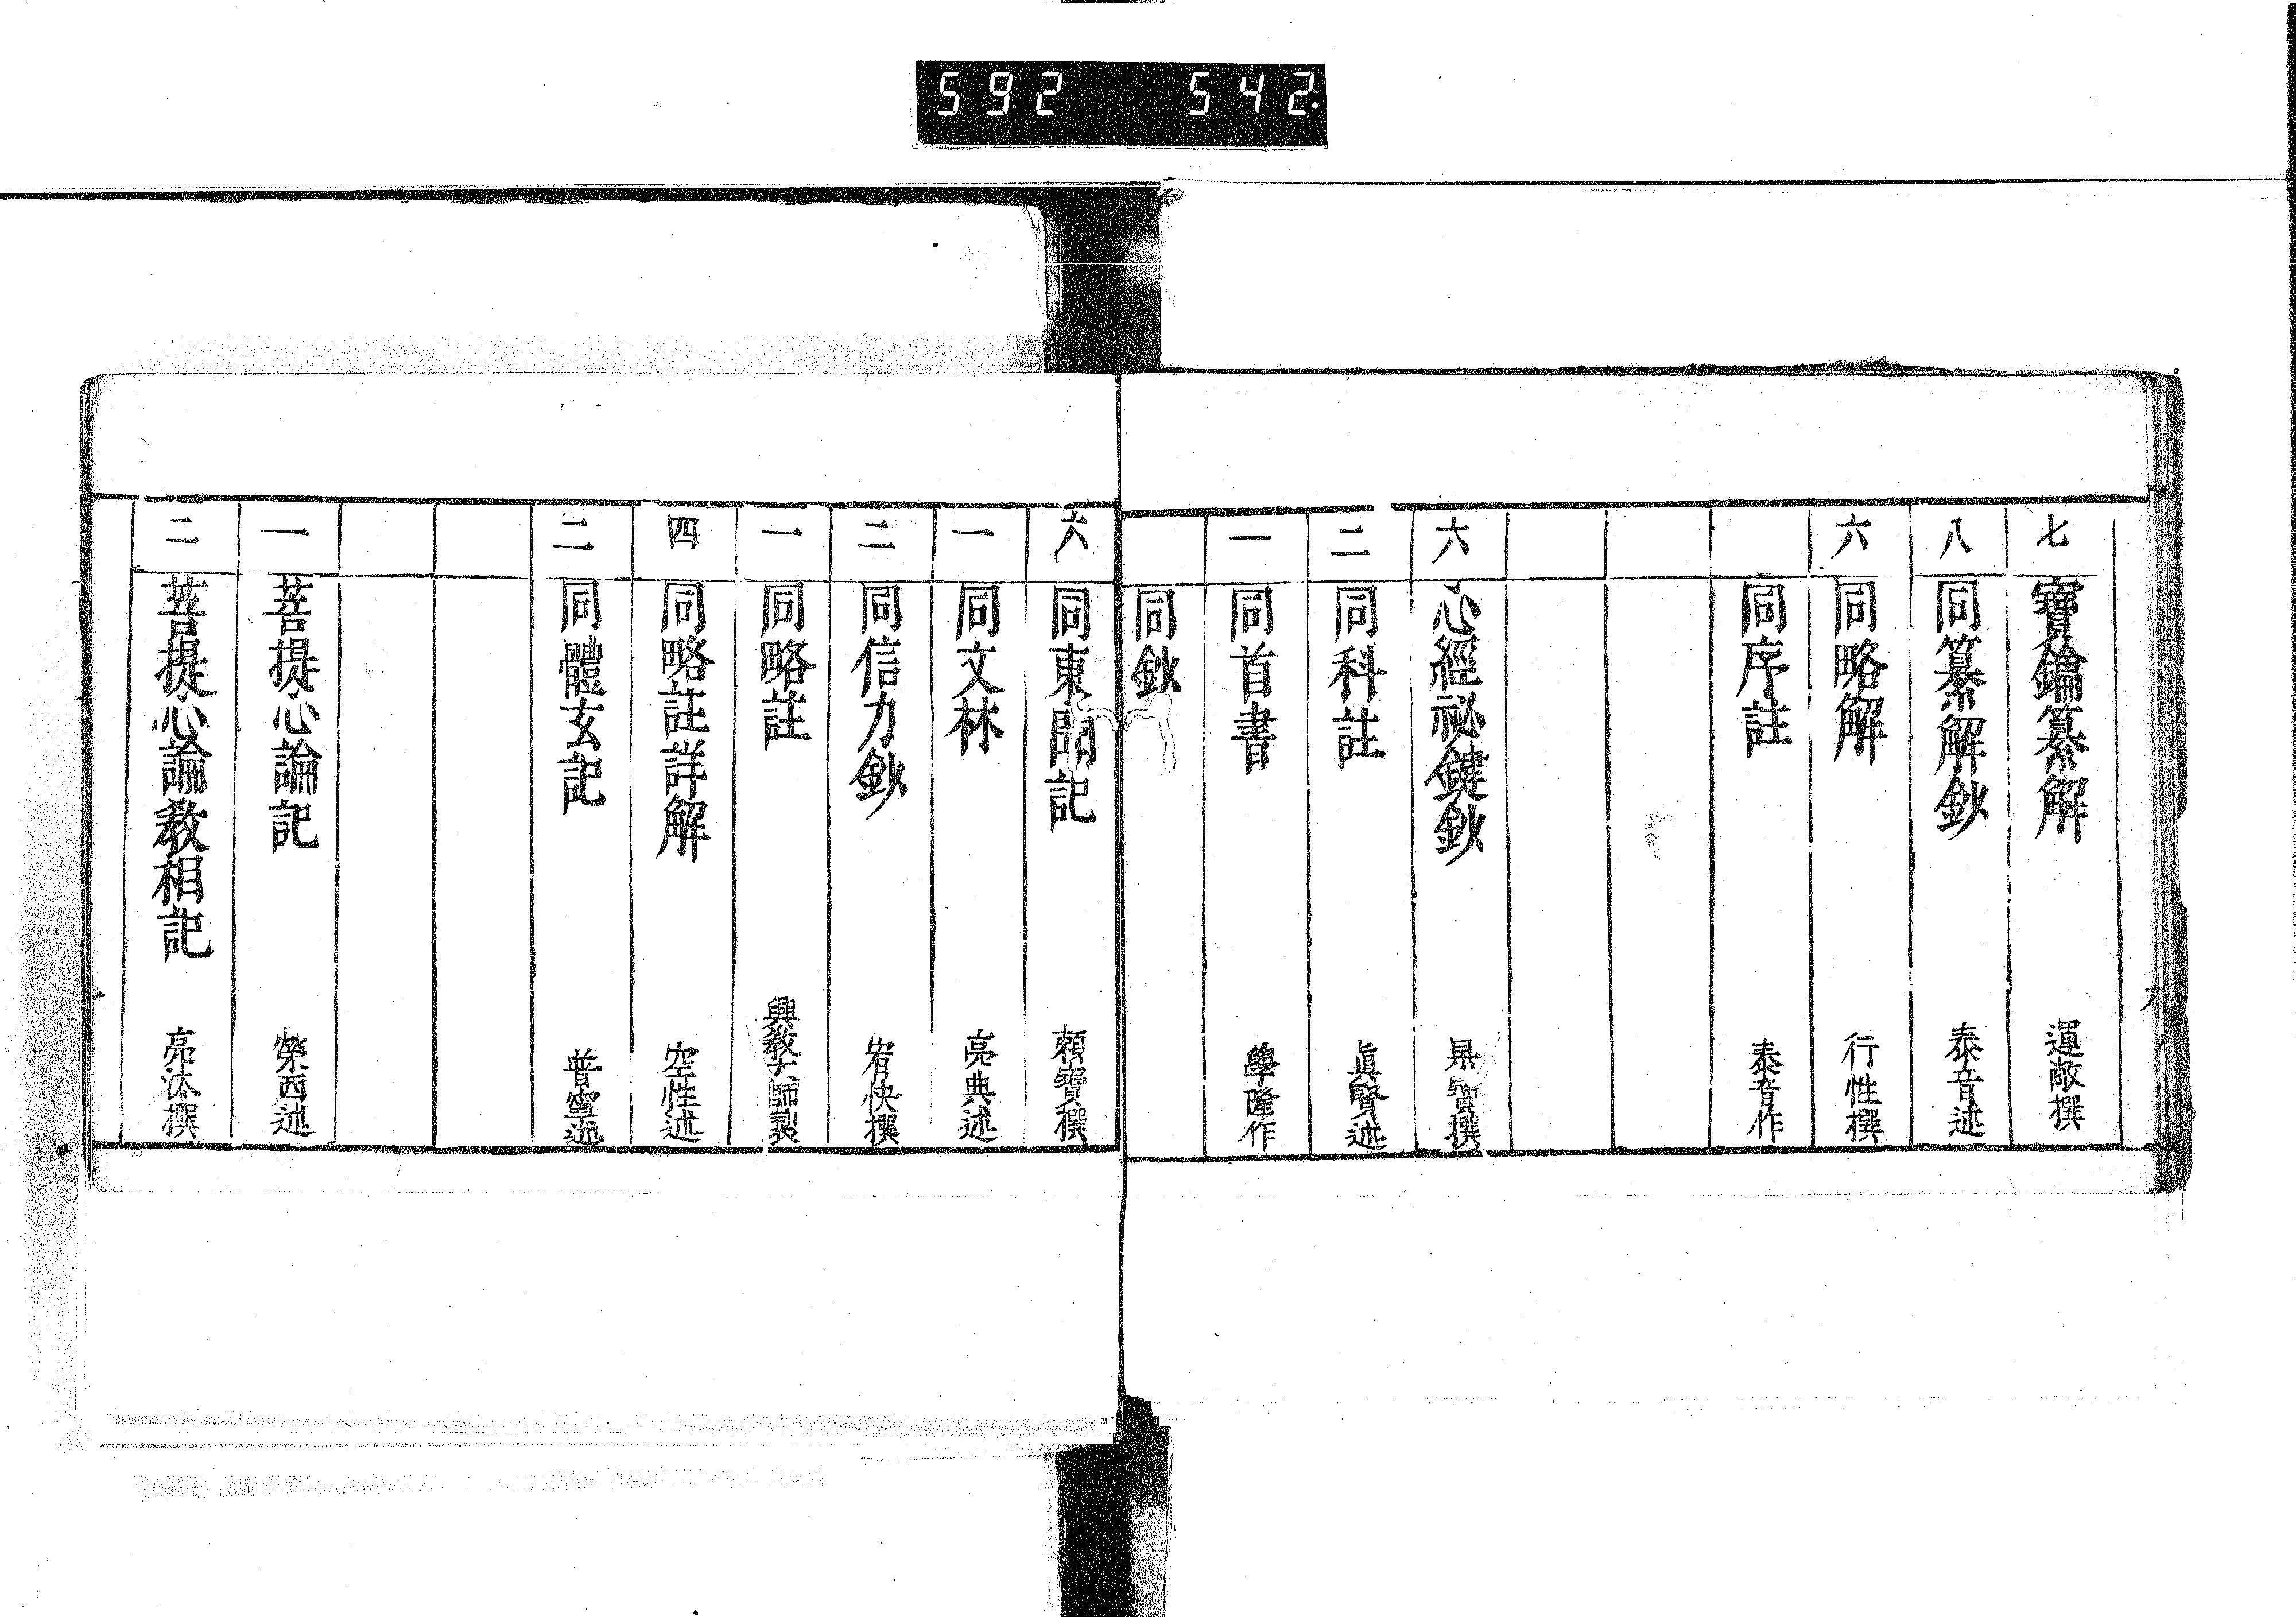 592 542
七 寶鑰纂解 運敞撰
八 同纂解鈔 泰音述
六 同略解 行性撰
同序註 泰音作
六 心經祕鍵鈔 杲寶撰
二 同科註 眞賢述
一 同首書 學隆作
同鈔
六 同東聞記 頼寶撰
一 同文林 亮典述
二 同信力鈔 宥快撰
一 同略註 興教大師製
四 同略註詳解 空性述
二 同體玄記 普寧述
一 菩提心論記 榮西述
二 菩提心論教相記 亮汰撰